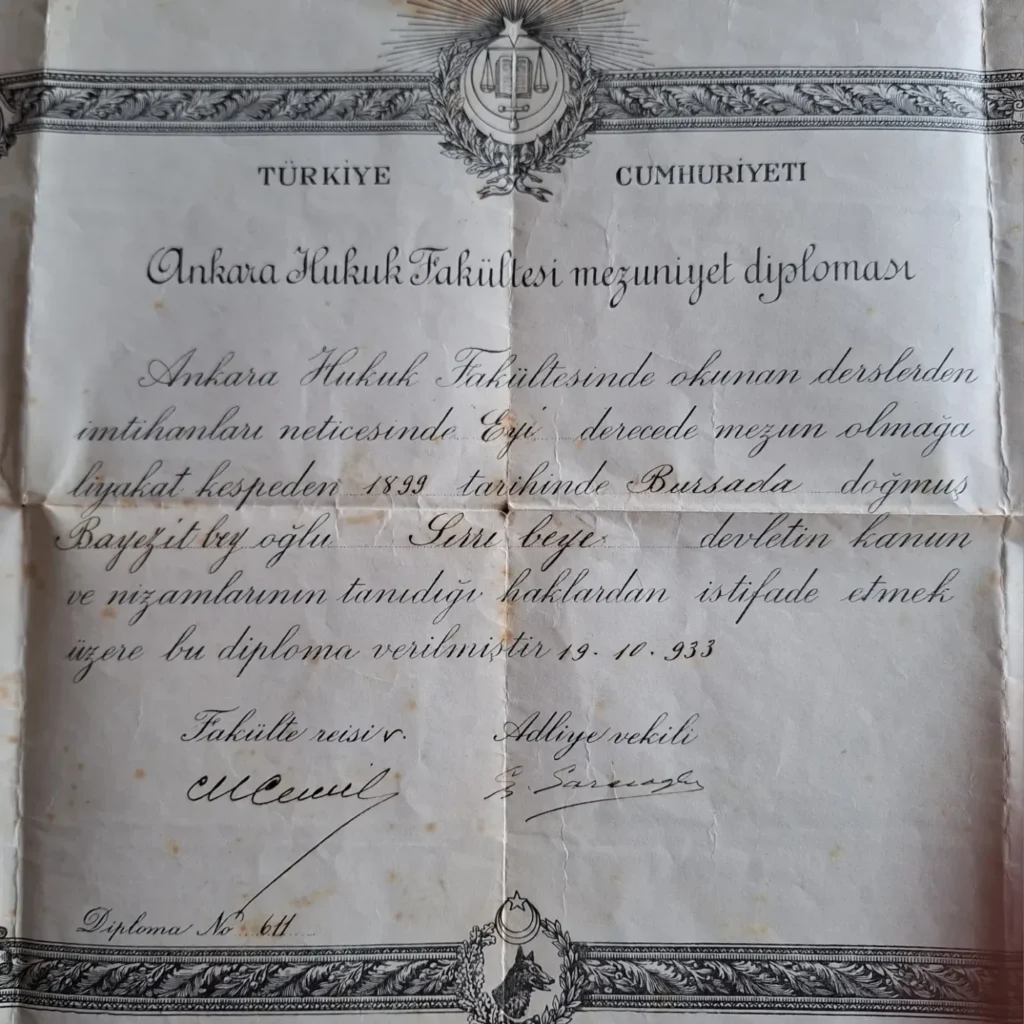 TÜRKİYE CUMHURİYETI
Ankara Hukuk Fakültesi mezuniyet diploması
Ankara Hukuk Fakültesinde okunan derslerden
imtihanları neticesinde Eyi derecede mezun olmağa
liyakat kespeden 1899 tarihinde Bursada doğmuş
Bayezit bey oğlu Sırrı beye devletin kanun
ve nizamlarının tanıdığı haklardan istifade etmek
üzere bu diploma verilmiştir 19. 10. 933
Fakülte reisi v. Adliye vekili
M Cemil Ş. Saracoğlu
Diploma No 611